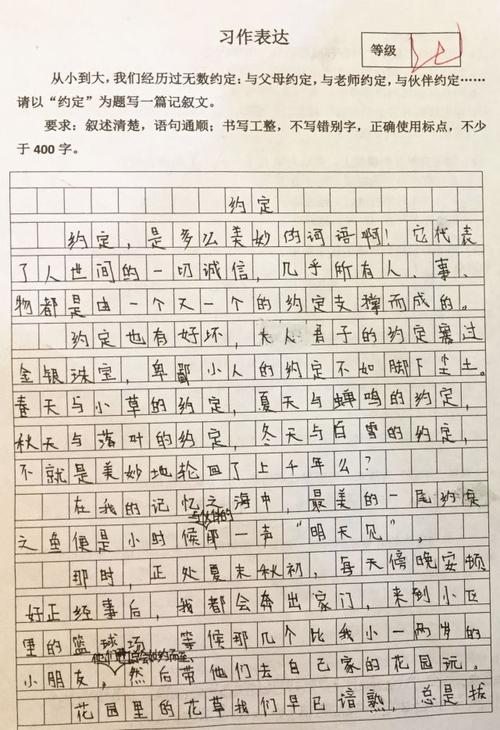 习作表达
等级
从小到大，我们经历过无数约定：与父母约定，与老师约定，与伙伴约定……
请以“约定”为题写一篇记叙文。
要求：叙述清楚，语句通顺；书写工整，不写错别字，正确使用标点，不少
于 400 字。
约定
约定，是多么美妙的词语啊！它代表
了人世间的一切诚信，几乎所有人、事、
物都是由一个又一个的约定支撑而成的。
约定也有好坏，大人君子的约定赛过
金银珠宝，卑鄙小人的约定不如脚下尘土。
春天与小草的约定，夏天与蝉鸣的约定，
秋天与落叶的约定，冬天与白雪的约定，
不就是美妙地轮回了上千年么？
在我的记忆之海中，最美的一尾约定
与伙伴的
之鱼便是小时候那一声“明天见”，
那时，正处夏末秋初，每天傍晚安顿
好正经事后，我都会奔出家门，来到小区
里的篮球场，等候那几个比我小一两岁的
他们也会如约而至，
小朋友，然后带他们去自己家的花园玩。
花园里的花草我们早已谙熟，总是拔